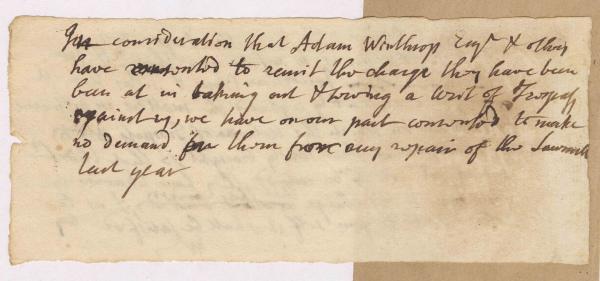 In consideration that Adam Winthrop Esqr & others
have consented to remit the charge they have been
been at in taking out & serving a writ of Trespass
against us, we have on our part consented to make
no demand on them for any repair of the Sawmill
last year